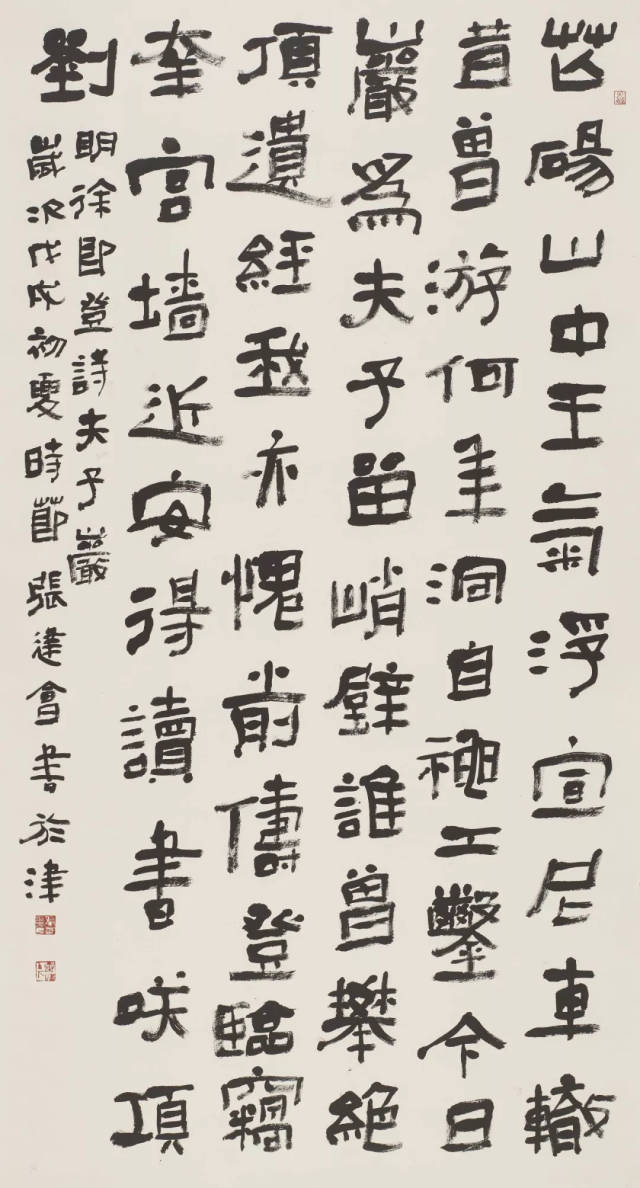 芒碭山中王氣浮宣尼車轍
昔曾游何年洞自神工鑿今日
巖爲夫子留峭壁誰曾攀絕
頂遺經我亦愧前儔登臨竊
幸宮墻近安得讀書咲項
劉
明徐即登詩夫子巖
歲次戊戌初夏時節張建會書於津